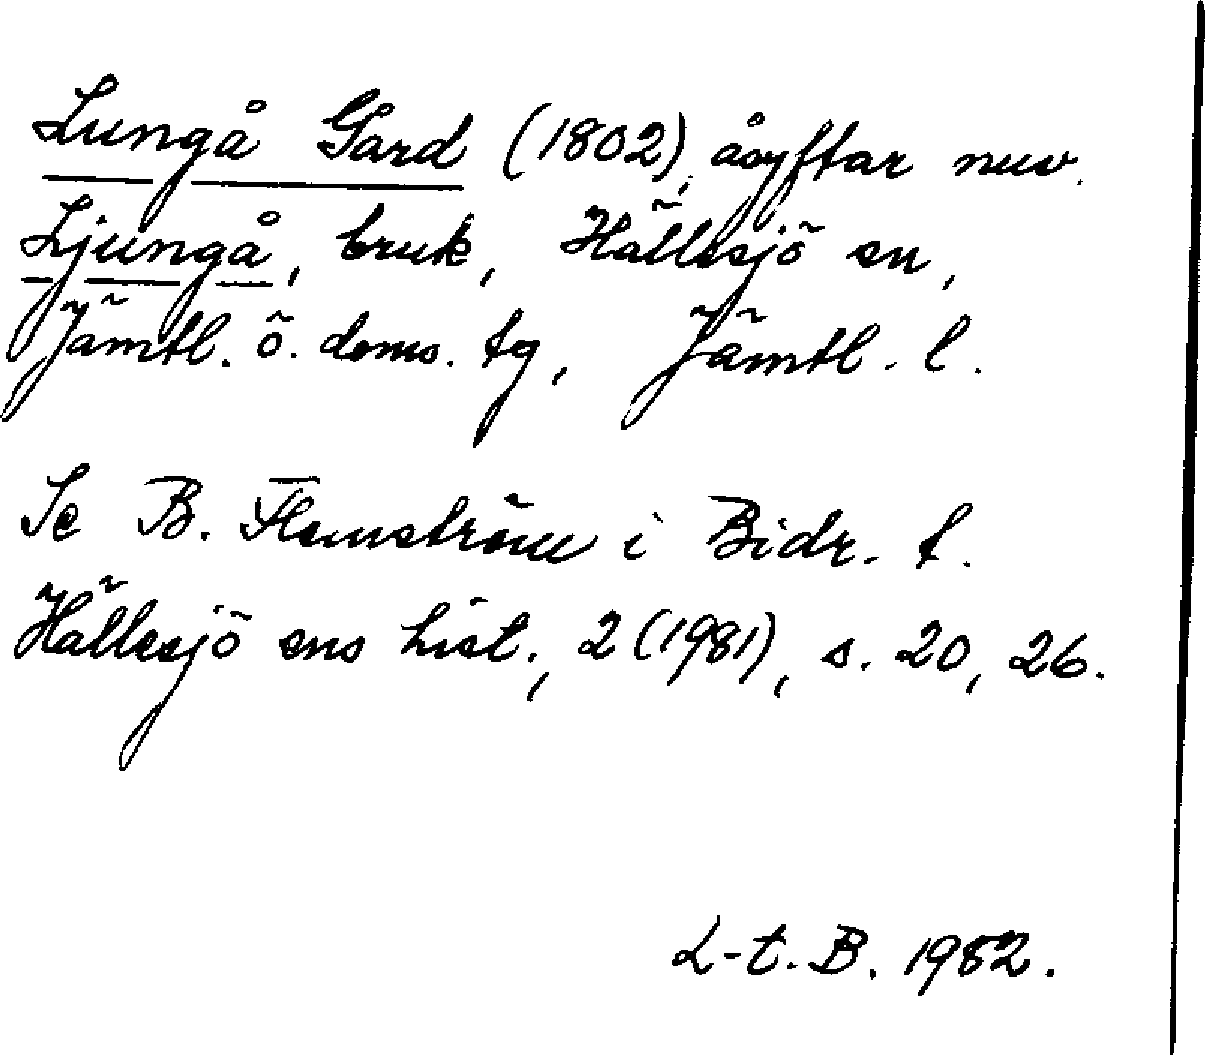 Lungå Gård (1802), åsyftar nuv.
Ljungå, bruk, Hällesjö sn,
Jämtl. ö. doms. tg, Jämtl. l.
Se B. Flemström i Bidr. t.
Hällesjö sns hist., 2 (1981), s. 20, 26.
L-t. B. 1982.